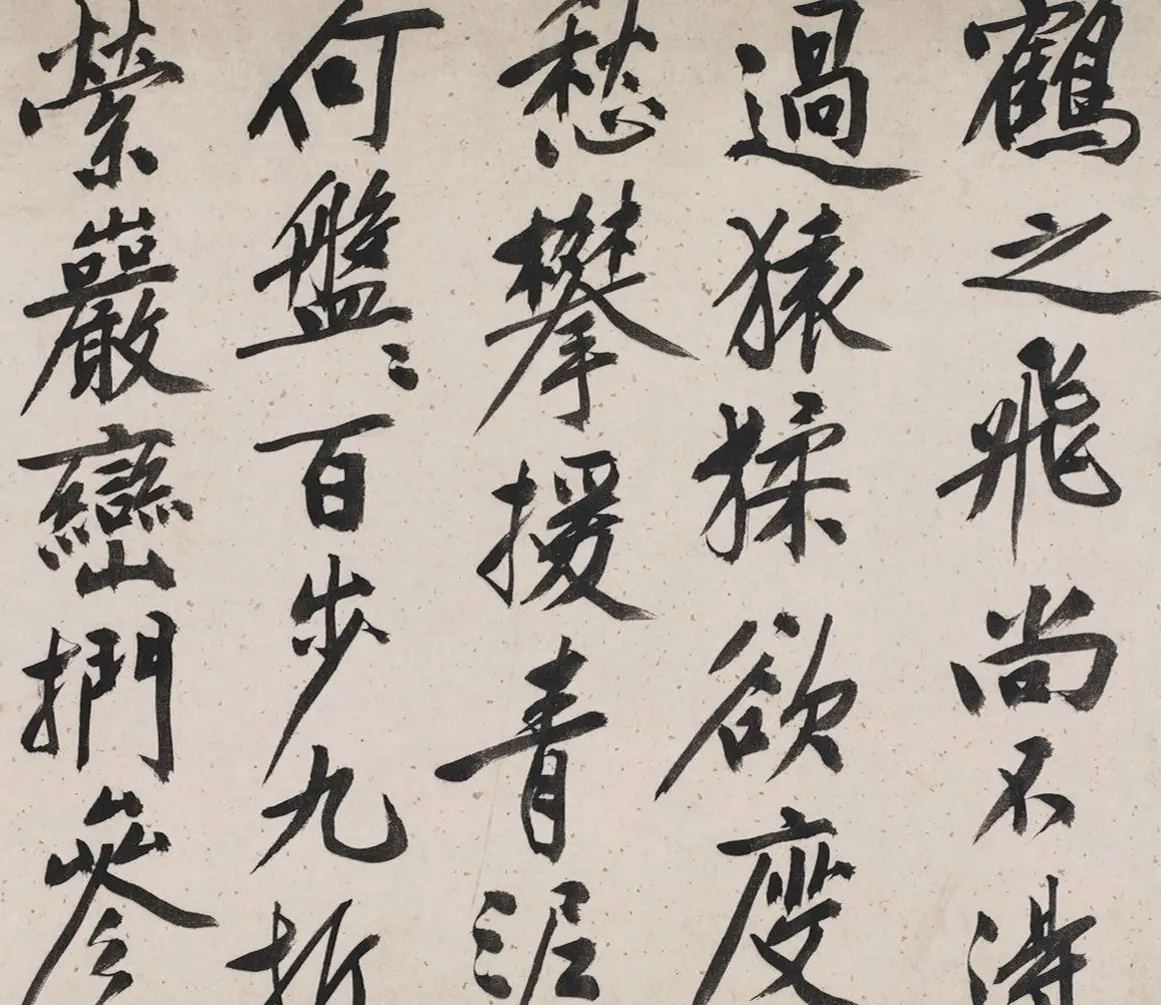 鶴之飛尚不得
過猿猱欲度
愁攀援青泥
何盤〻百步九折
縈巖巒捫參